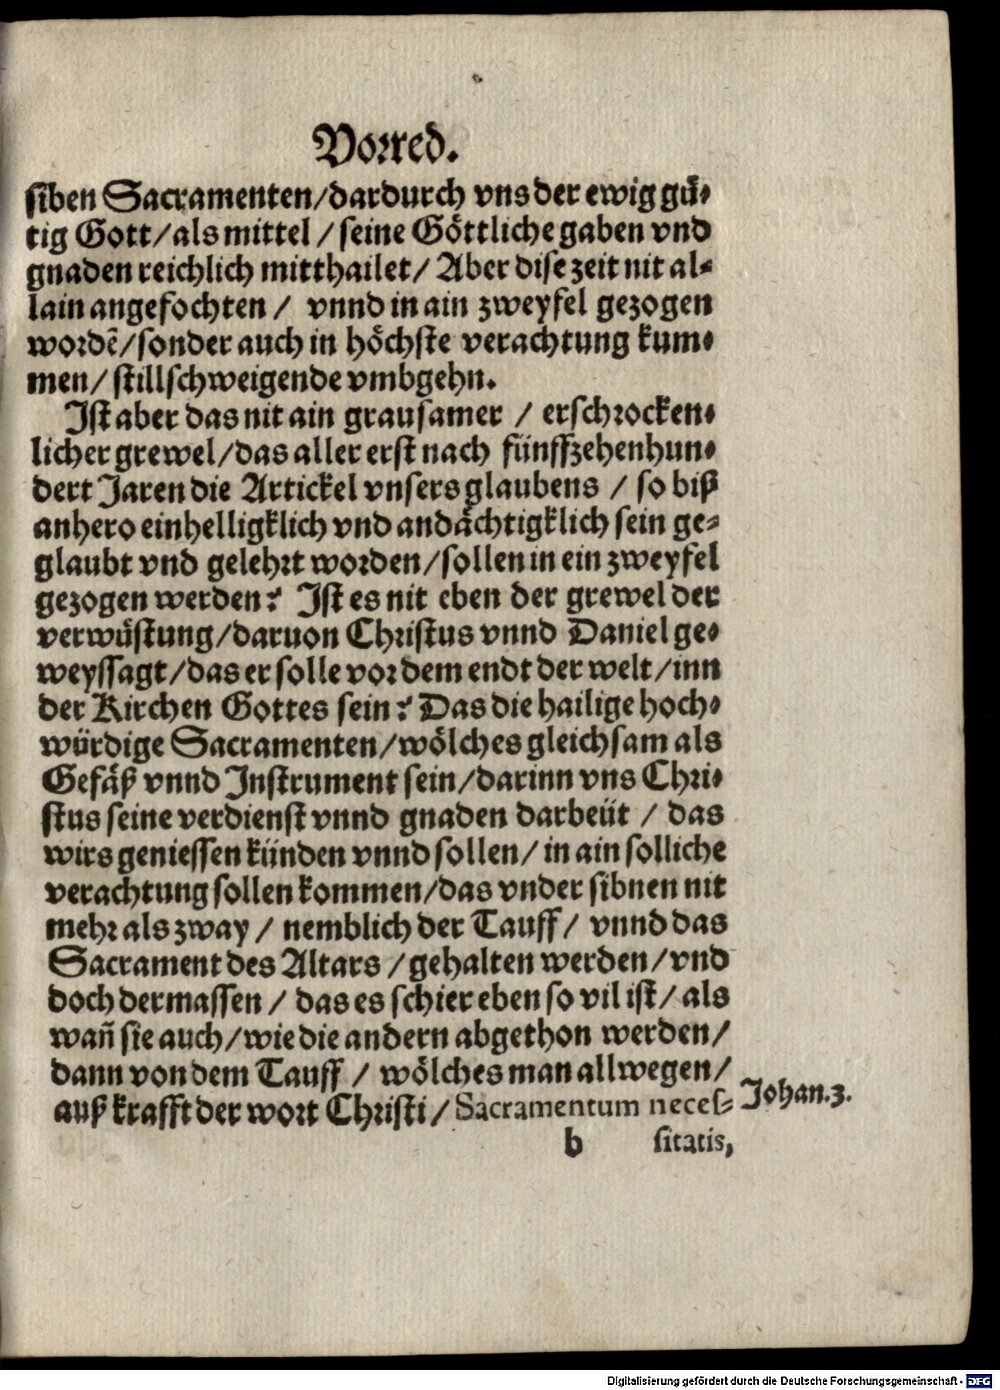 Vorred.
siben Sacramenten/dardurch vns der ewig guͤ-
tig Gott/als mittel/seine Goͤttliche gaben vnd
gnaden reichlich mitthailet/Aber dise zeit nit al-
lain angefochten/ vnnd in ain zweyfel gezogen
wordẽ/sonder auch in hoͤchste verachtung kum-
men/stillschweigende vmbgehn.
Ist aber das nit ain grausamer / erschrocken-
licher grewel/das aller erst nach fünffzehenhun-
dert Jaren die Artickel vnsers glaubens / so biß
anhero einhelligklich vnd andaͤchtigklich sein ge-
glaubt vnd gelehrt worden/sollen in ein zweyfel
gezogen werden? Ist es nit eben der grewel der
verwuͤstung/daruon Christus vnnd Daniel ge-
weyssagt/das er solle vor dem endt der welt/inn
der Kirchen Gottes sein? Das die hailige hoch-
würdige Sacramenten/woͤlches gleichsam als
Gefaͤß vnnd Instrument sein/darinn vns Chri-
stus seine verdienst vnnd gnaden darbeüt / das
wirs geniessen künden vnnd sollen/in ain solliche
verachtung sollen kommen/das vnder sibnen nit
mehr als zway / nemblich der Tauff/ vnnd das
Sacrament des Altars /gehalten werden/vnd
doch dermassen / das es schier eben so vil ist/als
wañ sie auch/wie die andern abgethon werden/
dann von dem Tauff / woͤlches man allwegen/
auß krafft der wort Christi/Sacramentum neces-
Johan.3.
b sitatis,
Digitalisierung gefördert durch die Deutsche Forschungsgemeinschaft - DFG